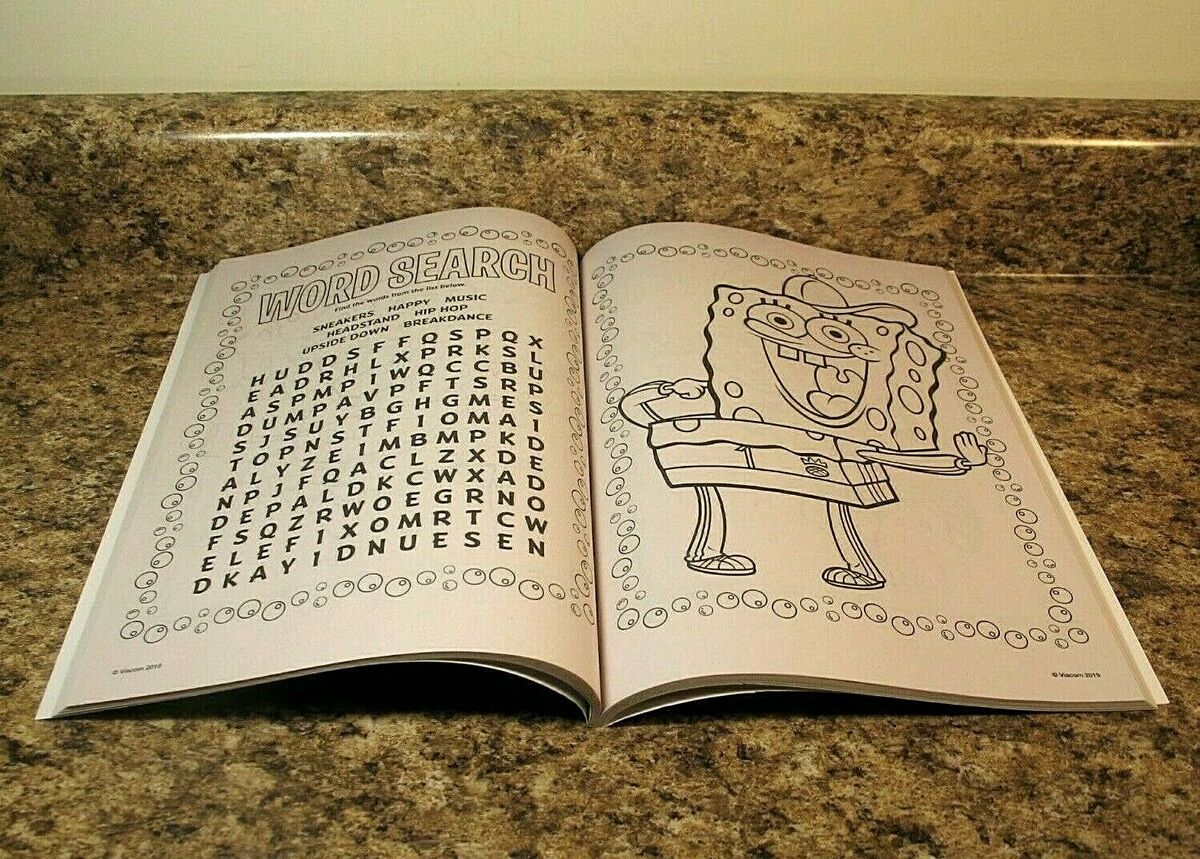 WORD SEARCH
Find the words from the list below.
SNEAKERS HAPPY MUSIC
HEADSTAND HIP HOP
UPSIDE DOWN BREAKDANCE
H U D D S F F Q S P Q X
E A D R H L X P R K S L
A S P M P I W Q C C B U
D U M P A V P F T S R P
S J S U Y B G H G M E S
T O P N S T F I O M A I
A L Y Z E I M B M P K D
N P J F Q A C L Z X D E
D E P A L D K C W X A D
F S Q Z R W O E G R N O
E L E F I X O M R T C W
D K A Y I D N U E S E N
© Viacom 2019
© Viacom 2019